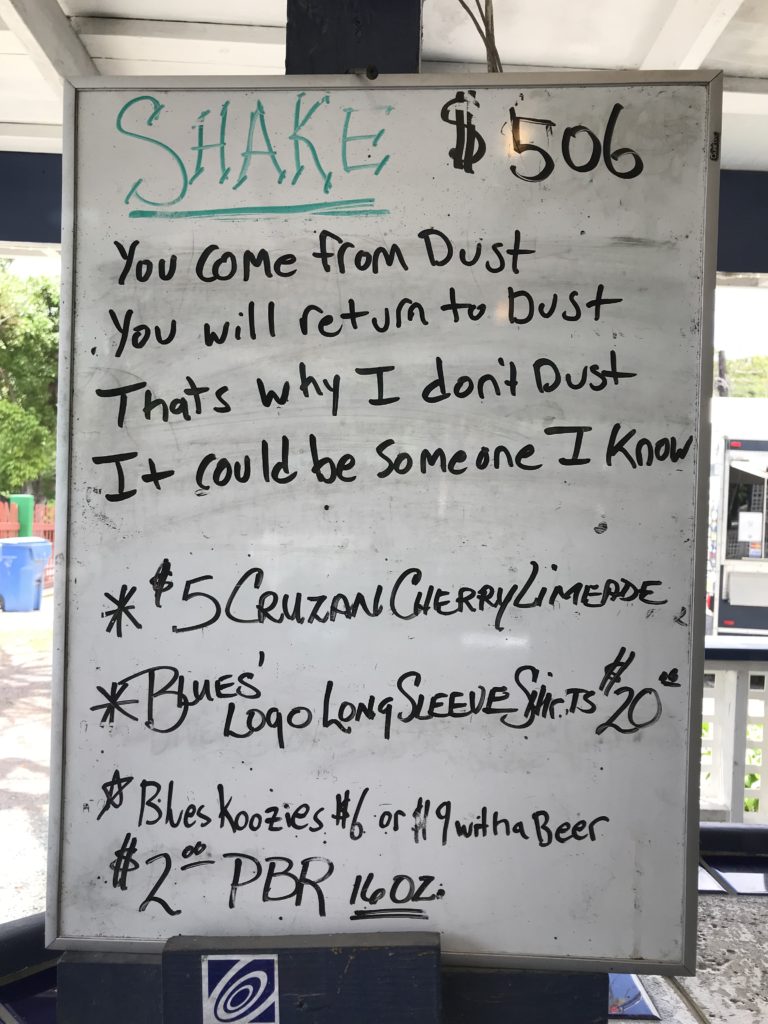 SHAKE $506
You come from Dust
You will return to Dust
Thats why I don't Dust
It could be someone I know
* $5 CRUZAN CHERRY LIMEADE
* BLUES' LOGO LONG SLEEVE Shirts $20.00
☆ Blues Koozies $6 or $9 with a Beer
$2.00 PBR 16 OZ.